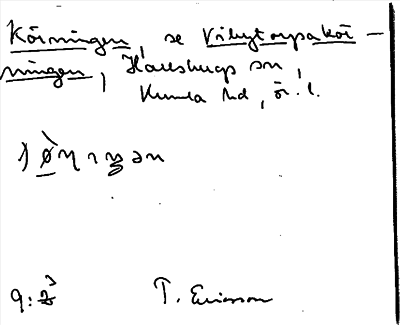 Körningen, se Vibytorpakör-
ningen, Hallsbergs sn,
Kumla hd, ör. l.
1)
T. Ericsson